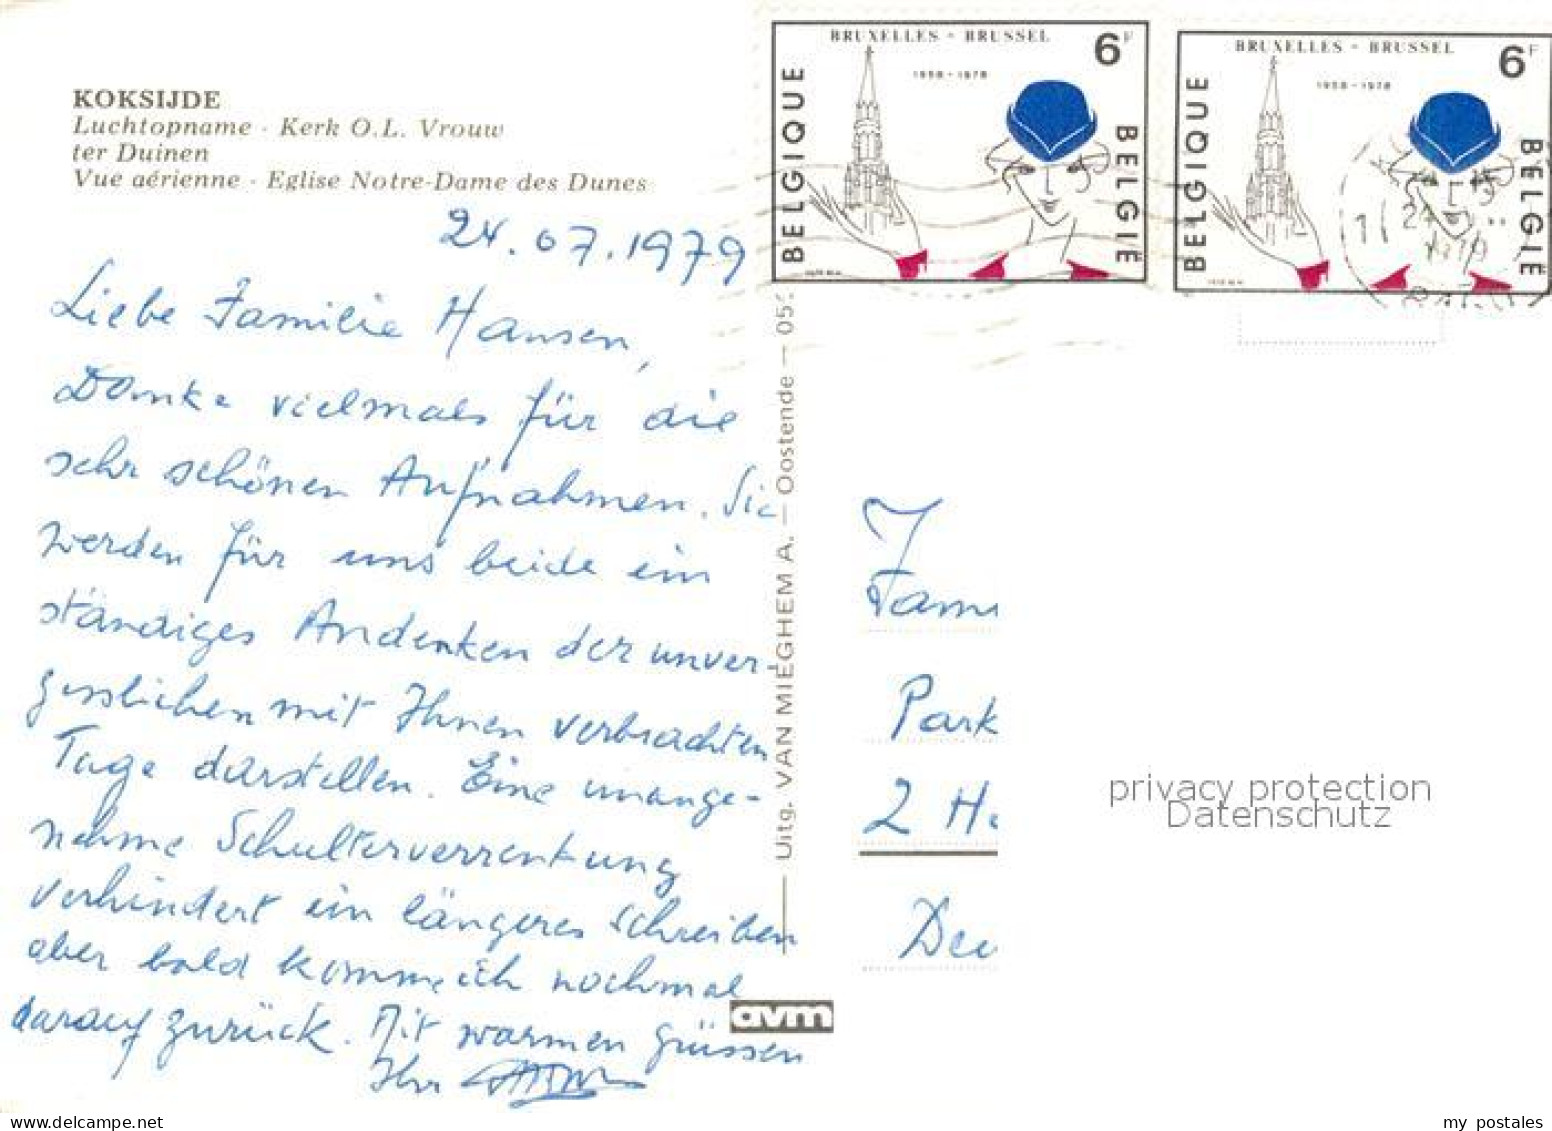 KOKSIJDE
Luchtopname - Kerk O.L. Vrouw
ter Duinen
Vue aérienne - Eglise Notre-Dame des Dunes
24.07.1979
Liebe Familie Hansen,
Danke vielmals für die
sehr schönen Aufnahmen. Sie
werden für uns beide ein
ständiges Andenken der unver-
gesslichen mit Ihnen verbrachten
Tage darstellen. Eine unange-
nehme Schulterverrenkung
verhindert ein längeres Schreiben
aber bald komme ich nochmal
darauf zurück. Mit warmen Grüssen
Ihr
Uitg. VAN MIEGHEM A. — Oostende — 05
avm
BRUXELLES - BRUSSEL
6F
1958-1978
BELGIQUE
BELGIË
BRUXELLES - BRUSSEL
6F
1958-1978
BELGIQUE
BELGIË
Fam
Park
2 Ha
Deu
privacy protection
Datenschutz
www.delcampe.net
my_postales